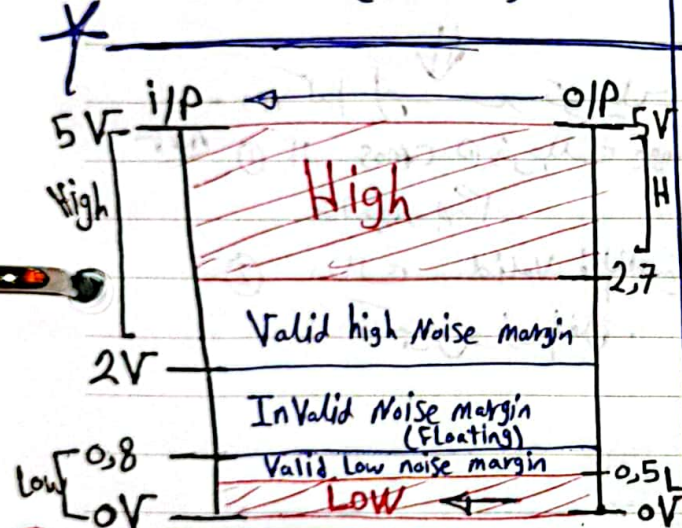 i/p o/p
5V 5V
High High H
2,7
Valid high Noise margin
2V
InValid Noise margin
(Floating)
0,8
Valid Low noise margin
0,5 L
Low LOW
0V 0V